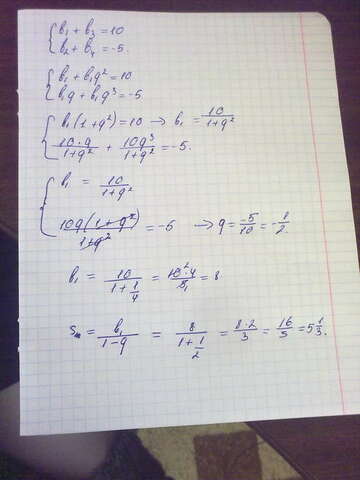 b₁ + b₃ = 10
b₂ + b₄ = -5.
b₁ + b₁q² = 10
b₁q + b₁q³ = -5
b₁(1+q²) = 10 → b₁ = 10/(1+q²)
10·q/(1+q²) + 10q³/(1+q²) = -5.
b₁ = 10/(1+q²)
10q(1+q²)/(1+q²) = -5 → q = -5/10 = -1/2.
b₁ = 10/(1+1/4) = 10·4/5 = 8
S = b₁/(1-q) = 8/(1+1/2) = 8·2/3 = 16/3 = 5 1/3.